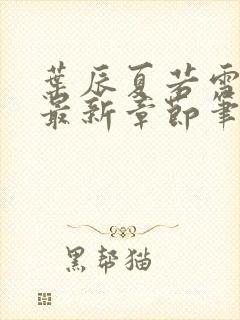 葉辰夏若雪
最新章節筆
黑幫猫